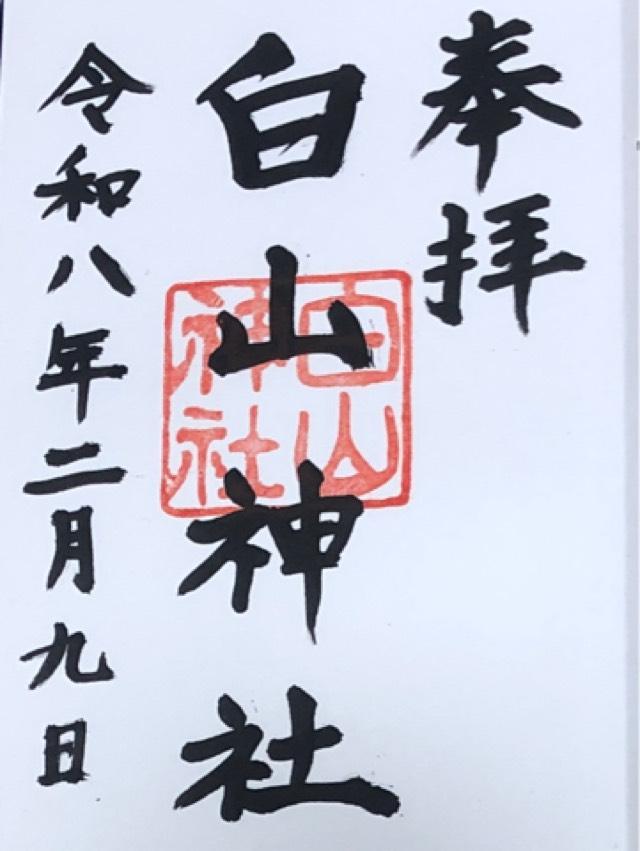 奉拝
白山神社
白山神社
令和八年二月九日